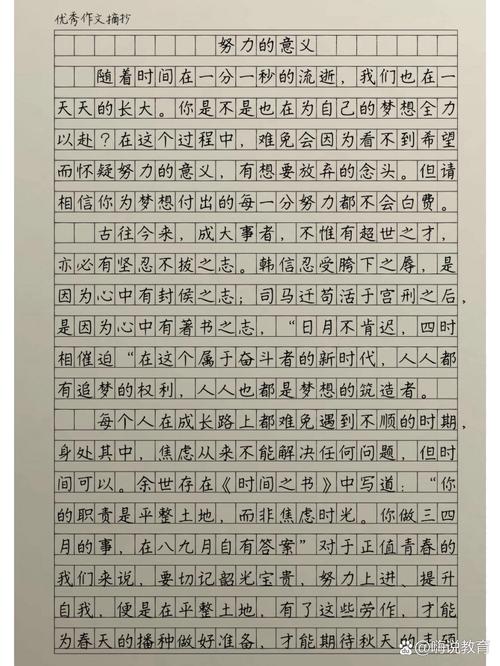 优秀作文摘抄
努力的意义
随着时间在一分一秒的流逝，我们也在一
天天的长大。你是不是也在为自己的梦想全力
以赴？在这个过程中，难免会因为看不到希望
而怀疑努力的意义，有想要放弃的念头。但请
相信你为梦想付出的每一分努力都不会白费。
古往今来，成大事者，不惟有超世之才，
亦必有坚忍不拔之志。韩信忍受胯下之辱，是
因为心中有封侯之志；司马迁苟活于宫刑之后，
是因为心中有著书之志，“日月不肯迟，四时
相催迫“在这个属于奋斗者的新时代，人人都
有追梦的权利，人人也都是梦想的筑造者。
每个人在成长路上都难免遇到不顺的时期，
身处其中，焦虑从来不能解决任何问题，但时
间可以。余世存在《时间之书》中写道：“你
的职责是平整土地，而非焦虑时光。你做三四
月的事，在八九月自有答案”对于正值青春的
我们来说，要切记韶光宝贵，努力上进、提升
自我，便是在平整土地，有了这些劳作，才能
为春天的播种做好准备，才能期待秋天的
@嗨说教育